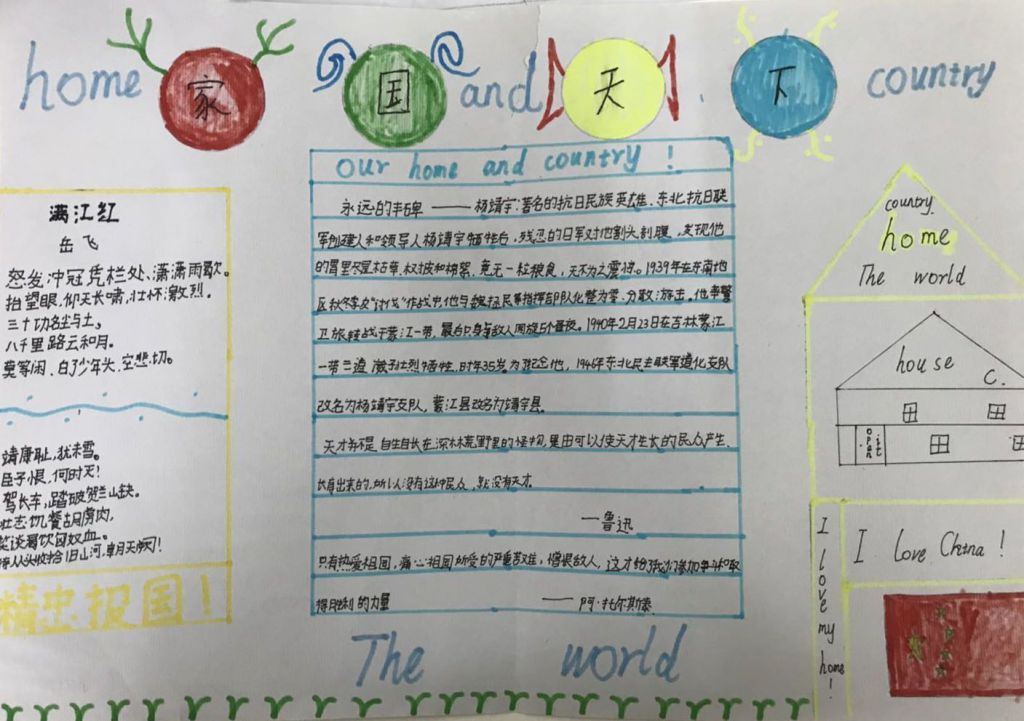 home 家 国 and 天 下 country
满江红
岳飞
怒发冲冠凭栏处、潇潇雨歇。
抬望眼，仰天长啸，壮怀激烈。
三十功名尘与土。
八千里路云和月。
莫等闲、白了少年头，空悲切。
靖康耻，犹未雪。
臣子恨，何时灭！
驾长车，踏破贺兰山缺。
壮志饥餐胡虏肉，
笑谈渴饮匈奴血。
待从头收拾旧山河，朝天阙！
精忠报国！
Our home and country !
永远的丰碑 —— 杨靖宇：著名的抗日民族英雄、东北抗日联
军创建人和领导人杨靖宇牺牲后，残忍的日军对他割头剖腹，发现他
的胃里尽是枯草、树皮和棉絮，竟无一粒粮食，无不为之震惊。1939年在东南地
区秋冬季反“讨伐”作战中他与魏拯民等指挥部队化整为零、分散游击。他率警
卫旅转战于蒙江一带，最后只身与敌人周旋5个昼夜。1940年2月23日在吉林蒙江
壮烈牺牲，时年35岁。为纪念他，1946年东北民主联军通化支队
改名为杨靖宇支队，蒙江县改名为靖宇县。
天才并不是自生自长在深林荒野里的怪物，是由可以使天才生长的民众产生、
长育出来的，所以没有这种民众，就没有天才。
—鲁迅
只有热爱祖国，痛心祖国所受的严重苦难，憎恨敌人，这才给了我们参加斗争和取
得胜利的力量 —— 阿·托尔斯泰
The world
country
home
The world
house
C.
open
it
I love my home!
I love China !